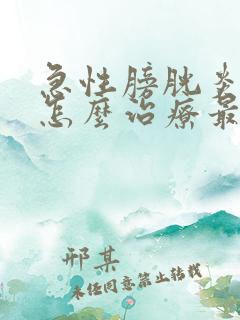 急性膀胱炎
怎麼治療最
邢某
未经同意禁止转载